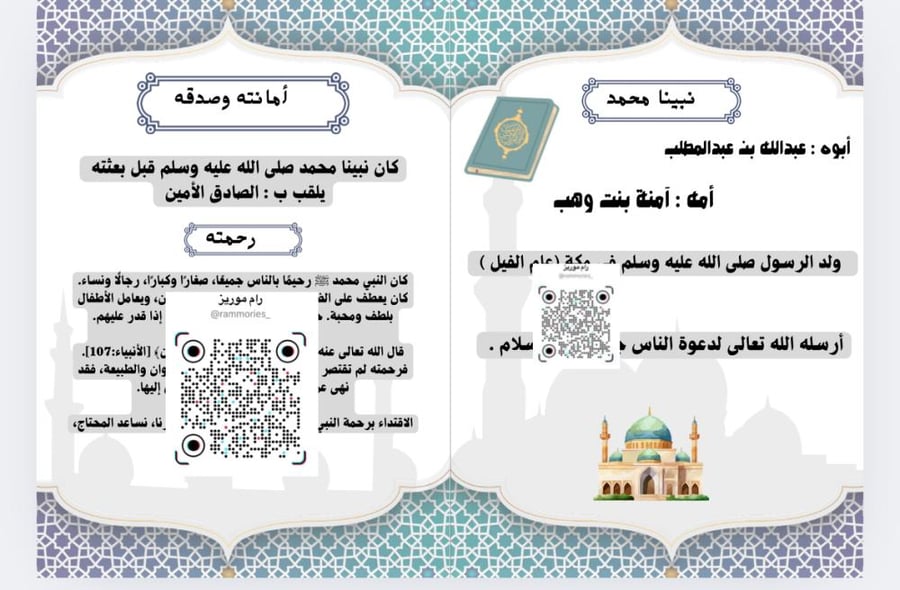 نبينا محمد
أبوه : عبدالله بن عبدالمطلب
أمه : آمنة بنت وهب
ولد الرسول صلى الله عليه وسلم في مكة (عام الفيل )
أرسله الله تعالى لدعوة الناس
رام موريز
@rammories_
أمانته وصدقه
كان نبينا محمد صلى الله عليه وسلم قبل بعثته
يلقب ب : الصادق الأمين
رحمته
كان النبي محمد ﷺ رحيمًا بالناس جميعًا، صغارًا وكبارًا، رجالًا ونساء.
كان يعطف على ويعامل الأطفال
بلطف ومحبة. إذا قدر عليهم.
قال الله تعالى عنه [الأنبياء:107].
فرحمته لم تقتصر والطبيعة، فقد
نهى إليها.
الاقتداء برحمة النبي نساعد المحتاج،
رام موريز
@rammories_